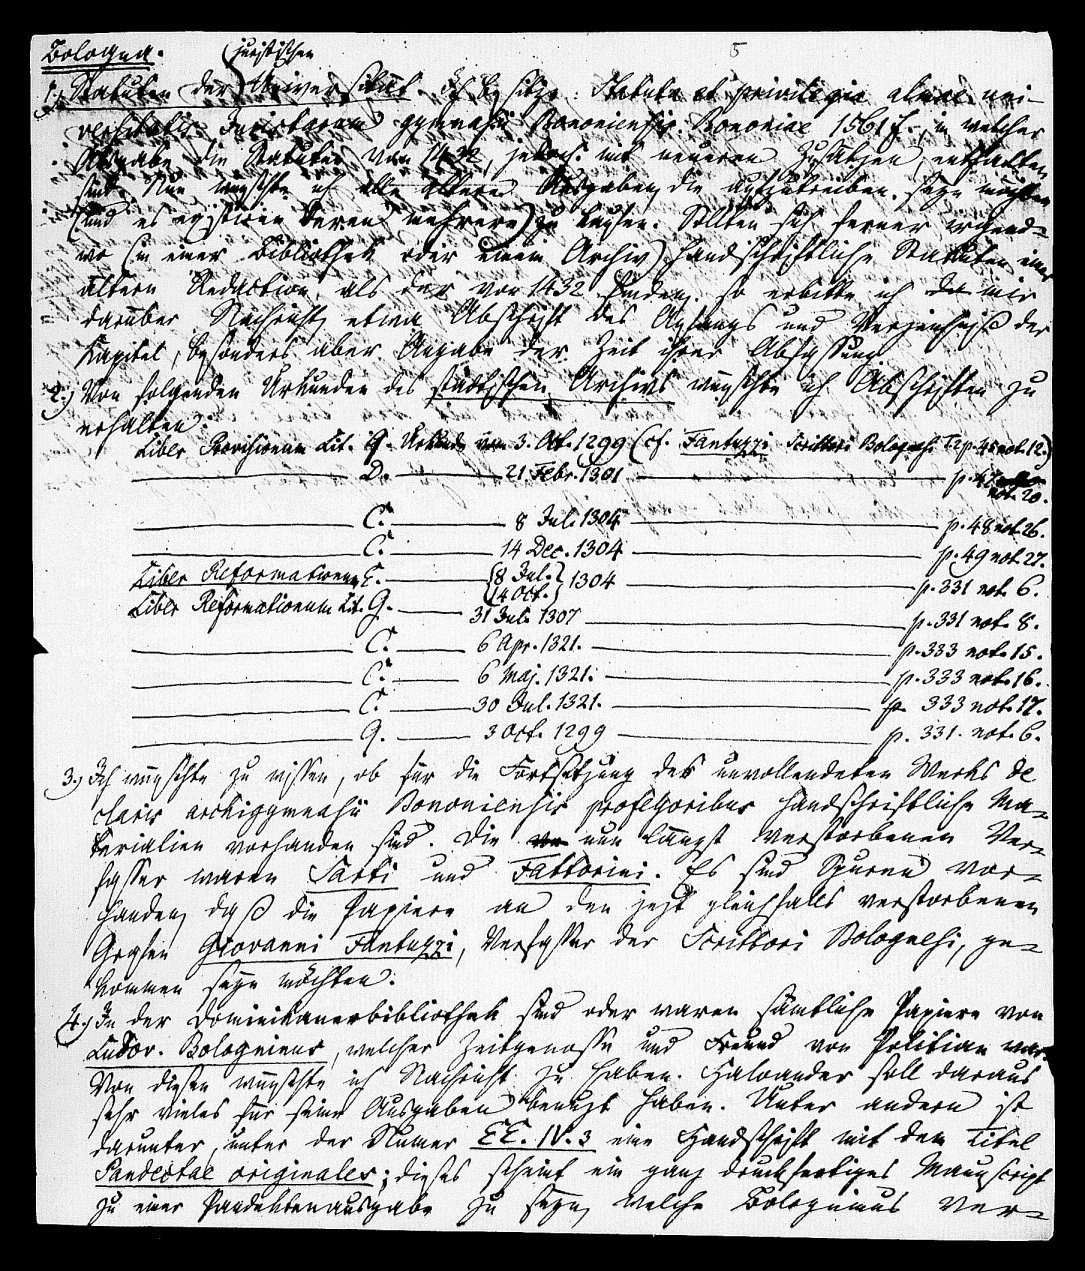 5
Bologna.
juristischen
1.) Statuten der Universität. Ich besitze: Statuta et privilegia almae uni-
versitatis Juristarum gymnasii Bononiensis. Bononiae 1561 f. in welcher
Ausgabe die Statuten von 1432, jedoch mit neueren Zusätzen, enthalten
sind. Nun wünschte ich alle ältere Ausgaben, die aufzutreiben seyn möchten
(und es existiren deren mehrere) zu kaufen. Sollten sich ferner irgend-
wo (in einer Bibliothek oder einem Archiv) handschriftliche Statuten einer
ältern Redaction als der von 1432 finden, so erbitte ich mir
darüber Nachricht, etwa Abschrift des Anfangs und Verzeichniß der
Kapitel, besonders aber Angabe der Zeit ihrer Abfassung.
2.) Von folgenden Urkunden des städtischen Archivs wünschte ich Abschriften zu
erhalten:
Liber Provisionum Lit. G. Urkunde von 3. Oct. 1299 (cf. Fantuzzi Scrittori Bolognesi T. 2 p. 45 not. 12.)
D. 21 Febr. 1301 p. 47
not. 20.
C. 8 Jul. 1304 p. 48 not. 26.
C. 14 Dec. 1304 p. 49 not. 27.
Liber Reformationum C. {8 Jul. 14 Oct.} 1304 p. 331 not. 6.
Liber Reformationum Lit. G. 31 Jul. 1307 p. 331 not. 8.
C. 6 Apr. 1321. p. 333 not. 15.
C. 6 Maj. 1321. p. 333 not. 16.
C. 30 Jul. 1321. p. 333 not. 17.
G. 3 Oct. 1299 p. 331. not. 6.
3.) Ich wünschte zu wissen, ob für die Fortsetzung des unvollendeten Werks de
claris archigymnasii Bononiensis professoribus handschriftliche Ma-
terialien vorhanden sind. Die nun längst verstorbenen Ver-
fasser waren Sarti und Fattorini. Es sind Spuren vor-
handen, daß die Papiere an den jetzt gleichfalls verstorbenen
Grafen Giovanni Fantuzzi, Verfasser der Scrittori Bolognesi, ge-
kommen seyn möchten.
4.) In der Dominikanerbibliothek sind oder waren sämtliche Papiere von
Ludov. Bologninus, welcher Zeitgenosse und Freund von Politian war.
Von diesen wünschte ich Nachricht zu haben. Haloander soll daraus
sehr vieles für seine Ausgaben benuzt haben. Unter andern ist
darunter, unter der Numer EE. IV. 3 eine Handschrift mit dem Titel
Pandectae originales; dieses scheint ein ganz druckfertiges Manuscript
zu einer Pandektenausgabe zu seyn, welche Bologninus ver-